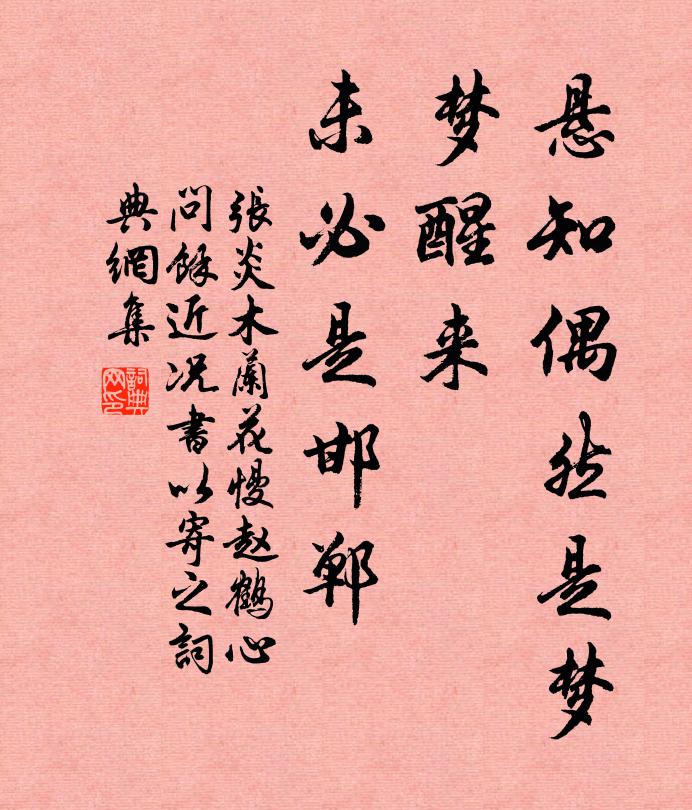 悬知偶然是梦
梦醒来
未必是邯郸
張炎木蘭花慢赵鶴心
問餘近况書以寄之詞
典網集
詞典
网印